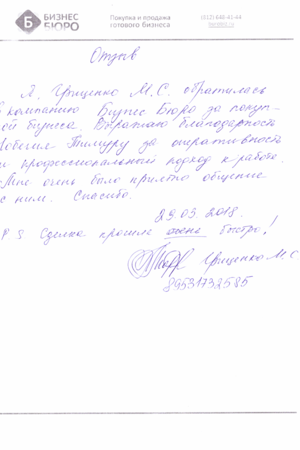 БИЗНЕС
БЮРО
Покупка и продажа
готового бизнеса
(812) 646-41-44
Отзыв
Я, Грищенко М.С. обратилась
в компанию Бизнес Бюро за покуп-
кой бизнеса. Выражаю благодарность
Тимуру за оперативность
и профессиональный подход к работе.
Мне очень было приятно общение
с ним. Спасибо.
29.03.2018.
P S Сделка прошла очень быстро!
Грищенко М.С.
89531732585